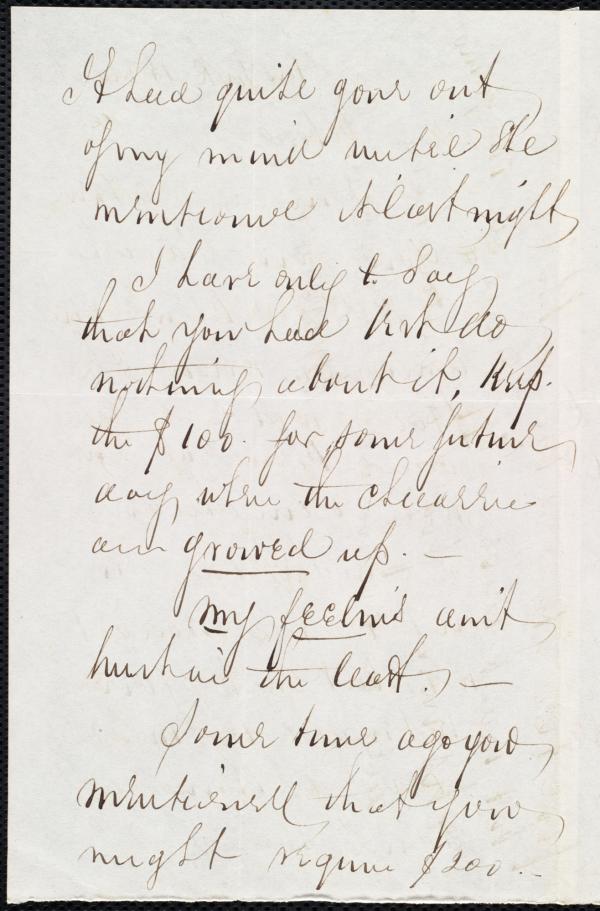 It had quite gone out
of my mind until she
mentioned it last night
I have only to say
that you had best do
nothing about it, Keep
the $100. for some future
day when the children
am growed up. —
My feelin's aint
hurt in the least. —
Some time ago you
mentioned that you
might require $200. —